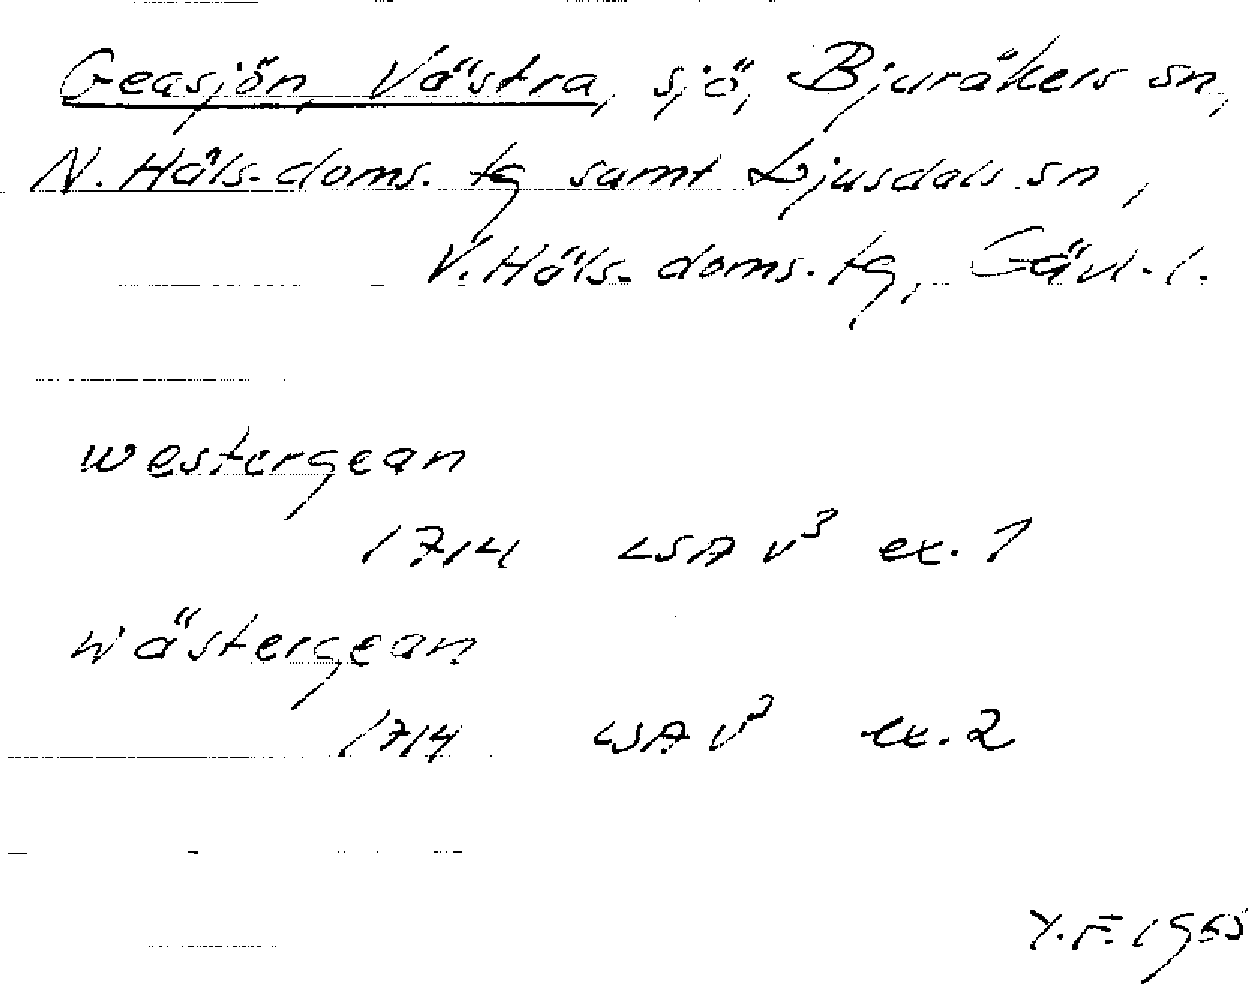 Geasjön, Västra, sjö, Bjuråkers sn,
N. Häls. doms. tg samt Ljusdals sn,
V. Häls. doms. tg, Gävl. l.
westergean
1714 LSA V³ ex. 1
wästergean
1714 LSA V³ ex. 2
Y.F. 1965